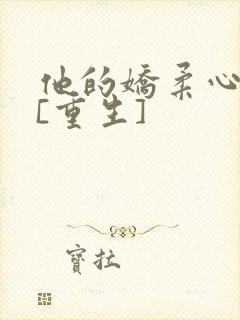 他的嬌柔心
[重生]
寶拉